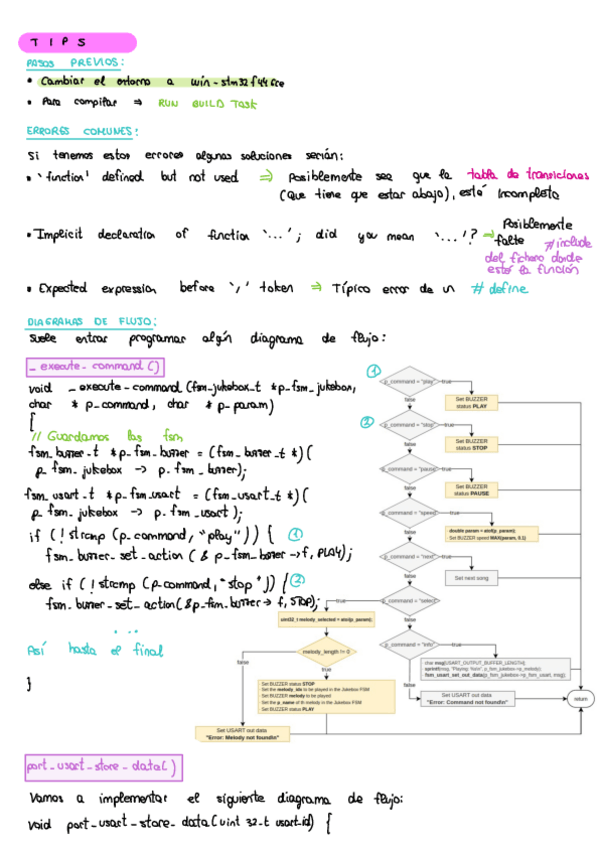 TIPS
PASOS PREVIOS:
• Cambiar el entorno a win-stm32f446re
• Para compilar ⇒ RUN BUILD Task
ERRORES COMUNES:
Si tenemos estos errores algunas soluciones serían:
• 'function' defined but not used ⇒ Posiblemente sea que la tabla de transiciones
(que tiene que estar abajo), esté incompleta
• Implicit declaration of function '...'; did you mean '...'? ⇒ Posiblemente
falte #include
del fichero donde
esté la función
• Expected expression before ',' token ⇒ Típico error de un #define
DIAGRAMAS DE FLUJO:
Suele entrar programar algún diagrama de flujo:
_execute_command()
void _execute_command (fsm_jukebox_t *p_fsm_jukebox,
char * p_command, char * p_param)
{
// Guardamos las fsm
fsm_buzzer_t *p_fsm_buzzer = (fsm_buzzer_t *)(
p_fsm_jukebox -> p_fsm_buzzer);
fsm_usart_t *p_fsm_usart = (fsm_usart_t *)(
p_fsm_jukebox -> p_fsm_usart);
if (!strcmp (p_command, "play")) { ①
fsm_buzzer_set_action (&p_fsm_buzzer->f, PLAY);
else if (!strcmp (p_command, "stop")) { ②
fsm_buzzer_set_action(&p_fsm_buzzer->f, STOP);
...
Así hasta el final
}
①
p_command = "play"
true
Set BUZZER
status PLAY
false
②
p_command = "stop"
true
Set BUZZER
status STOP
false
p_command = "pause"
true
Set BUZZER
status PAUSE
false
p_command = "speed"
true
double param = atof(p_param);
Set BUZZER speed MAX(param, 0.1)
false
p_command = "next"
true
Set next song.
false
p_command = "select"
true
uint32_t melody_selected = atoi(p_param);
melody_length != 0
false
true
Set BUZZER status STOP
Set the melody_idx to be played in the Jukebox FSM
Set BUZZER melody to be played
Set the p_name of th melody in the Jukebox FSM
Set BUZZER status PLAY
Set USART out data
"Error: Melody not found\n"
false
p_command = "info"
true
char msg[USART_OUTPUT_BUFFER_LENGTH];
sprintf(msg, "Playing: %s\n", p_fsm_jukebox->p_melody);
fsm_usart_set_out_data(p_fsm_jukebox->p_fsm_usart, msg);
false
Set USART out data
"Error: Command not found\n"
return
port_usart_store_data()
Vamos a implementar el siguiente diagrama de flujo:
void port_usart_store_data(uint32_t usart_id) {